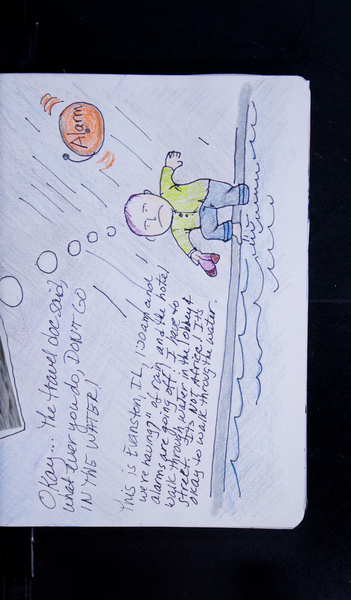 Alarm
Okay... the travel doc said,
what ever you do, DON'T GO
IN THE WATER!
This is Evanston, IL, 1:30am and
we're having 7" of rain and the hotel
alarms are going off. I have to
walk through water in the lobby &
street. It's NOT Africa! It's
okay to walk through the water.